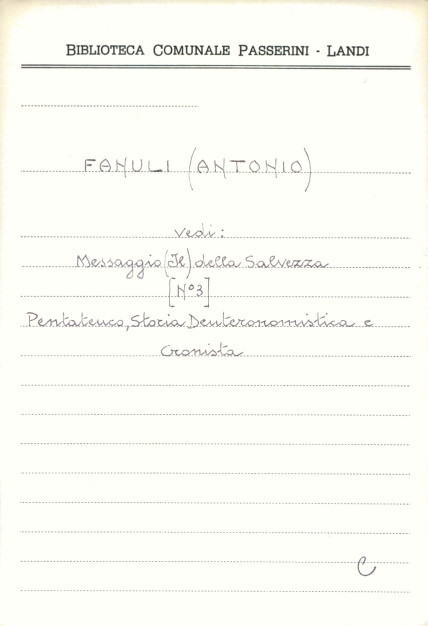 BIBLIOTECA COMUNALE PASSERINI - LANDI
FANULI (ANTONIO)
vedi:
Messaggio (Il) della Salvezza
[N°3]
Pentateuco, Storia Deuteronomistica e
Cronista
C